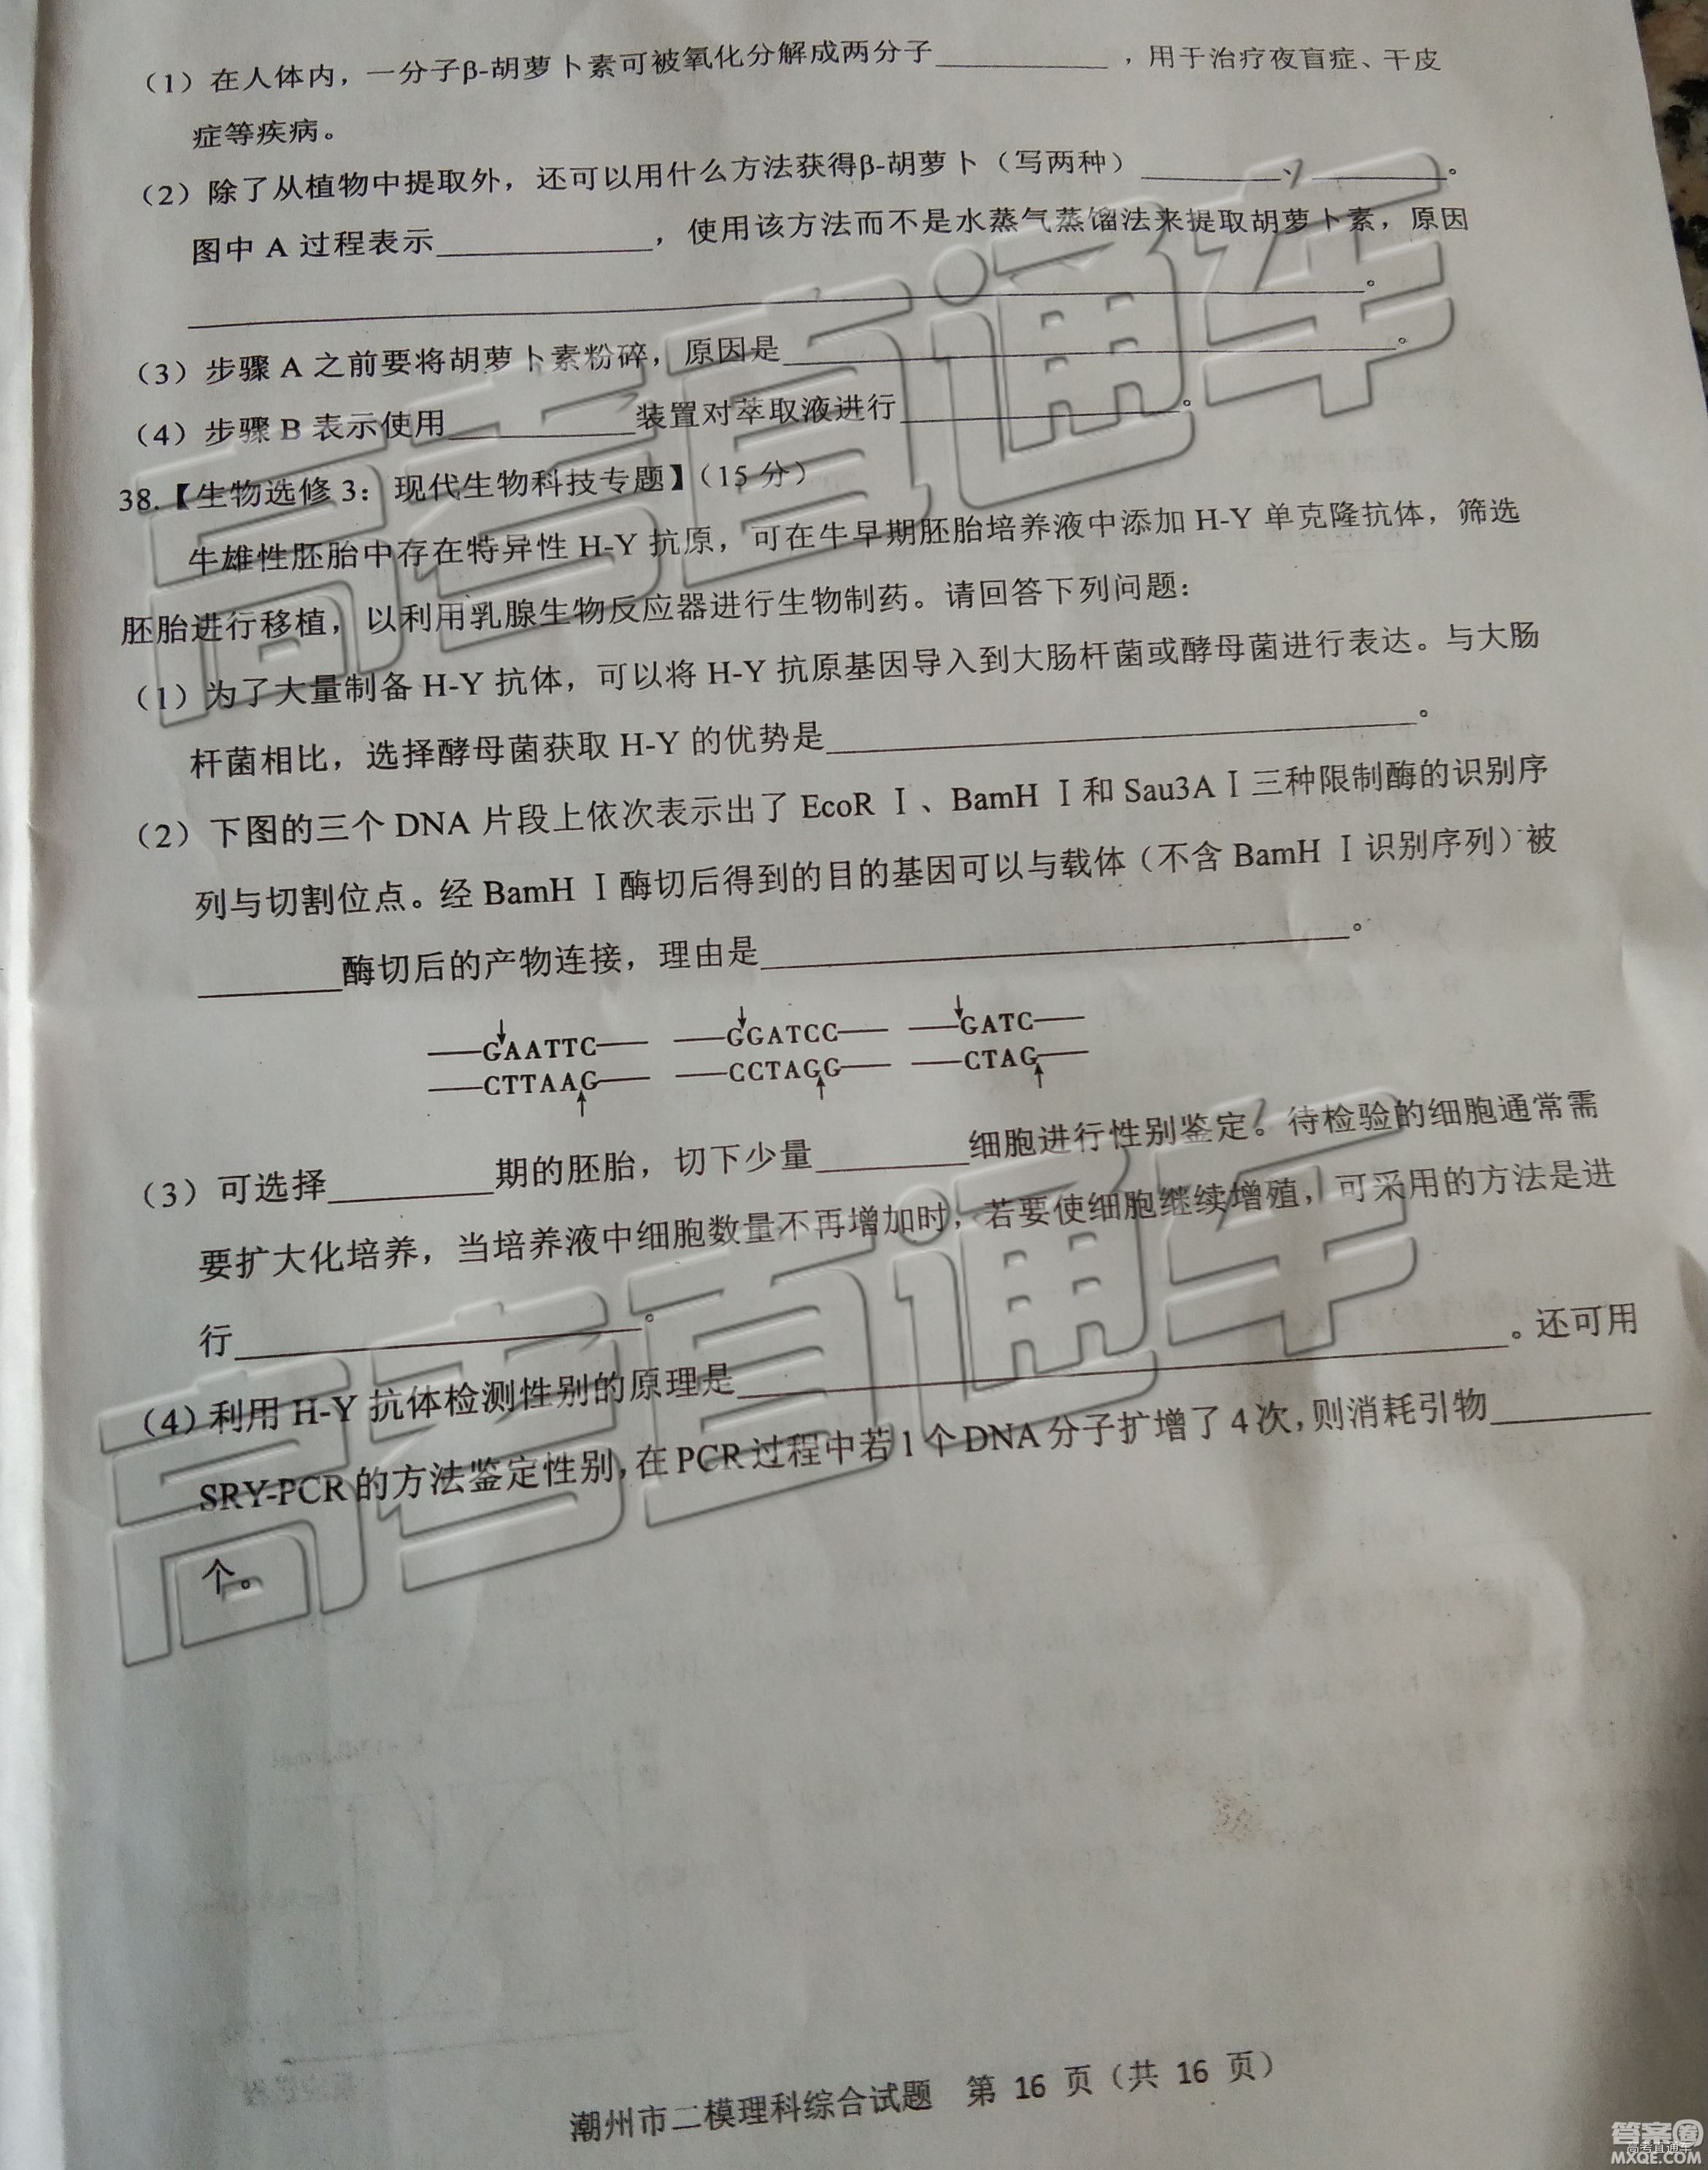 （1）在人体内，一分子β-胡萝卜素可被氧化分解成两分子__________，用于治疗夜盲症、干皮
症等疾病。
（2）除了从植物中提取外，还可以用什么方法获得β-胡萝卜（写两种）________、________。
图中 A 过程表示____________，使用该方法而不是水蒸气蒸馏法来提取胡萝卜素，原因
____________________________________________________________。
（3）步骤 A 之前要将胡萝卜素粉碎，原因是______________________________。
（4）步骤 B 表示使用__________装置对萃取液进行______________。
38.【生物选修 3：现代生物科技专题】（15 分）
牛雄性胚胎中存在特异性 H-Y 抗原，可在牛早期胚胎培养液中添加 H-Y 单克隆抗体，筛选
胚胎进行移植，以利用乳腺生物反应器进行生物制药。请回答下列问题：
（1）为了大量制备 H-Y 抗体，可以将 H-Y 抗原基因导入到大肠杆菌或酵母菌进行表达。与大肠
杆菌相比，选择酵母菌获取 H-Y 的优势是______________________________。
（2）下图的三个 DNA 片段上依次表示出了 EcoR Ⅰ、BamH Ⅰ和 Sau3A Ⅰ三种限制酶的识别序
列与切割位点。经 BamH Ⅰ酶切后得到的目的基因可以与载体（不含 BamH Ⅰ识别序列）被
________酶切后的产物连接，理由是______________________________。
—GAATTC— —GGATCC— —GATC—
—CTTAAG— —CCTAGG— —CTAG—
（3）可选择________期的胚胎，切下少量________细胞进行性别鉴定。待检验的细胞通常需
要扩大化培养，当培养液中细胞数量不再增加时，若要使细胞继续增殖，可采用的方法是进
行____________________。
（4）利用 H-Y 抗体检测性别的原理是________________________________________。还可用
SRY-PCR的方法鉴定性别，在PCR过程中若1个DNA分子扩增了4次，则消耗引物________
个。
潮州市二模理科综合试题 第 16 页（共 16 页）
高考直通车
高考直通车
答案圈
高考直通车
MXQE.COM